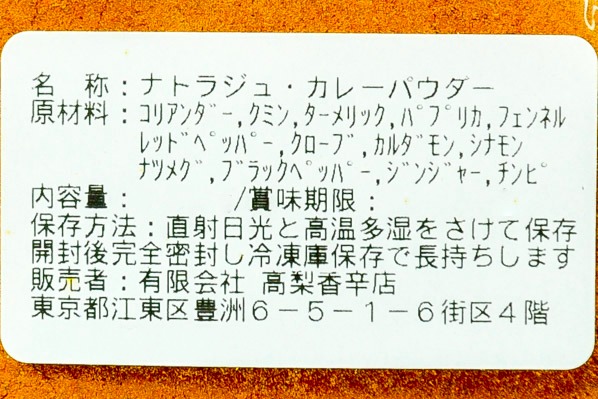 名　称：ナトラジュ・カレーパウダー
原材料：ｺﾘｱﾝﾀﾞｰ,ｸﾐﾝ,ﾀｰﾒﾘｯｸ,ﾊﾟﾌﾟﾘｶ,ﾌｪﾝﾈﾙ
ﾚｯﾄﾞﾍﾟｯﾊﾟｰ,ｸﾛｰﾌﾞ,ｶﾙﾀﾞﾓﾝ,ｼﾅﾓﾝ
ﾅﾂﾒｸﾞ,ﾌﾞﾗｯｸﾍﾟｯﾊﾟｰ,ｼﾞﾝｼﾞｬｰ,ﾁﾝﾋﾟ
内容量：　　　　/賞味期限：
保存方法：直射日光と高温多湿をさけて保存
開封後完全密封し冷凍庫保存で長持ちします
販売者：有限会社 高梨香辛店
東京都江東区豊洲６－５－１－６街区４階